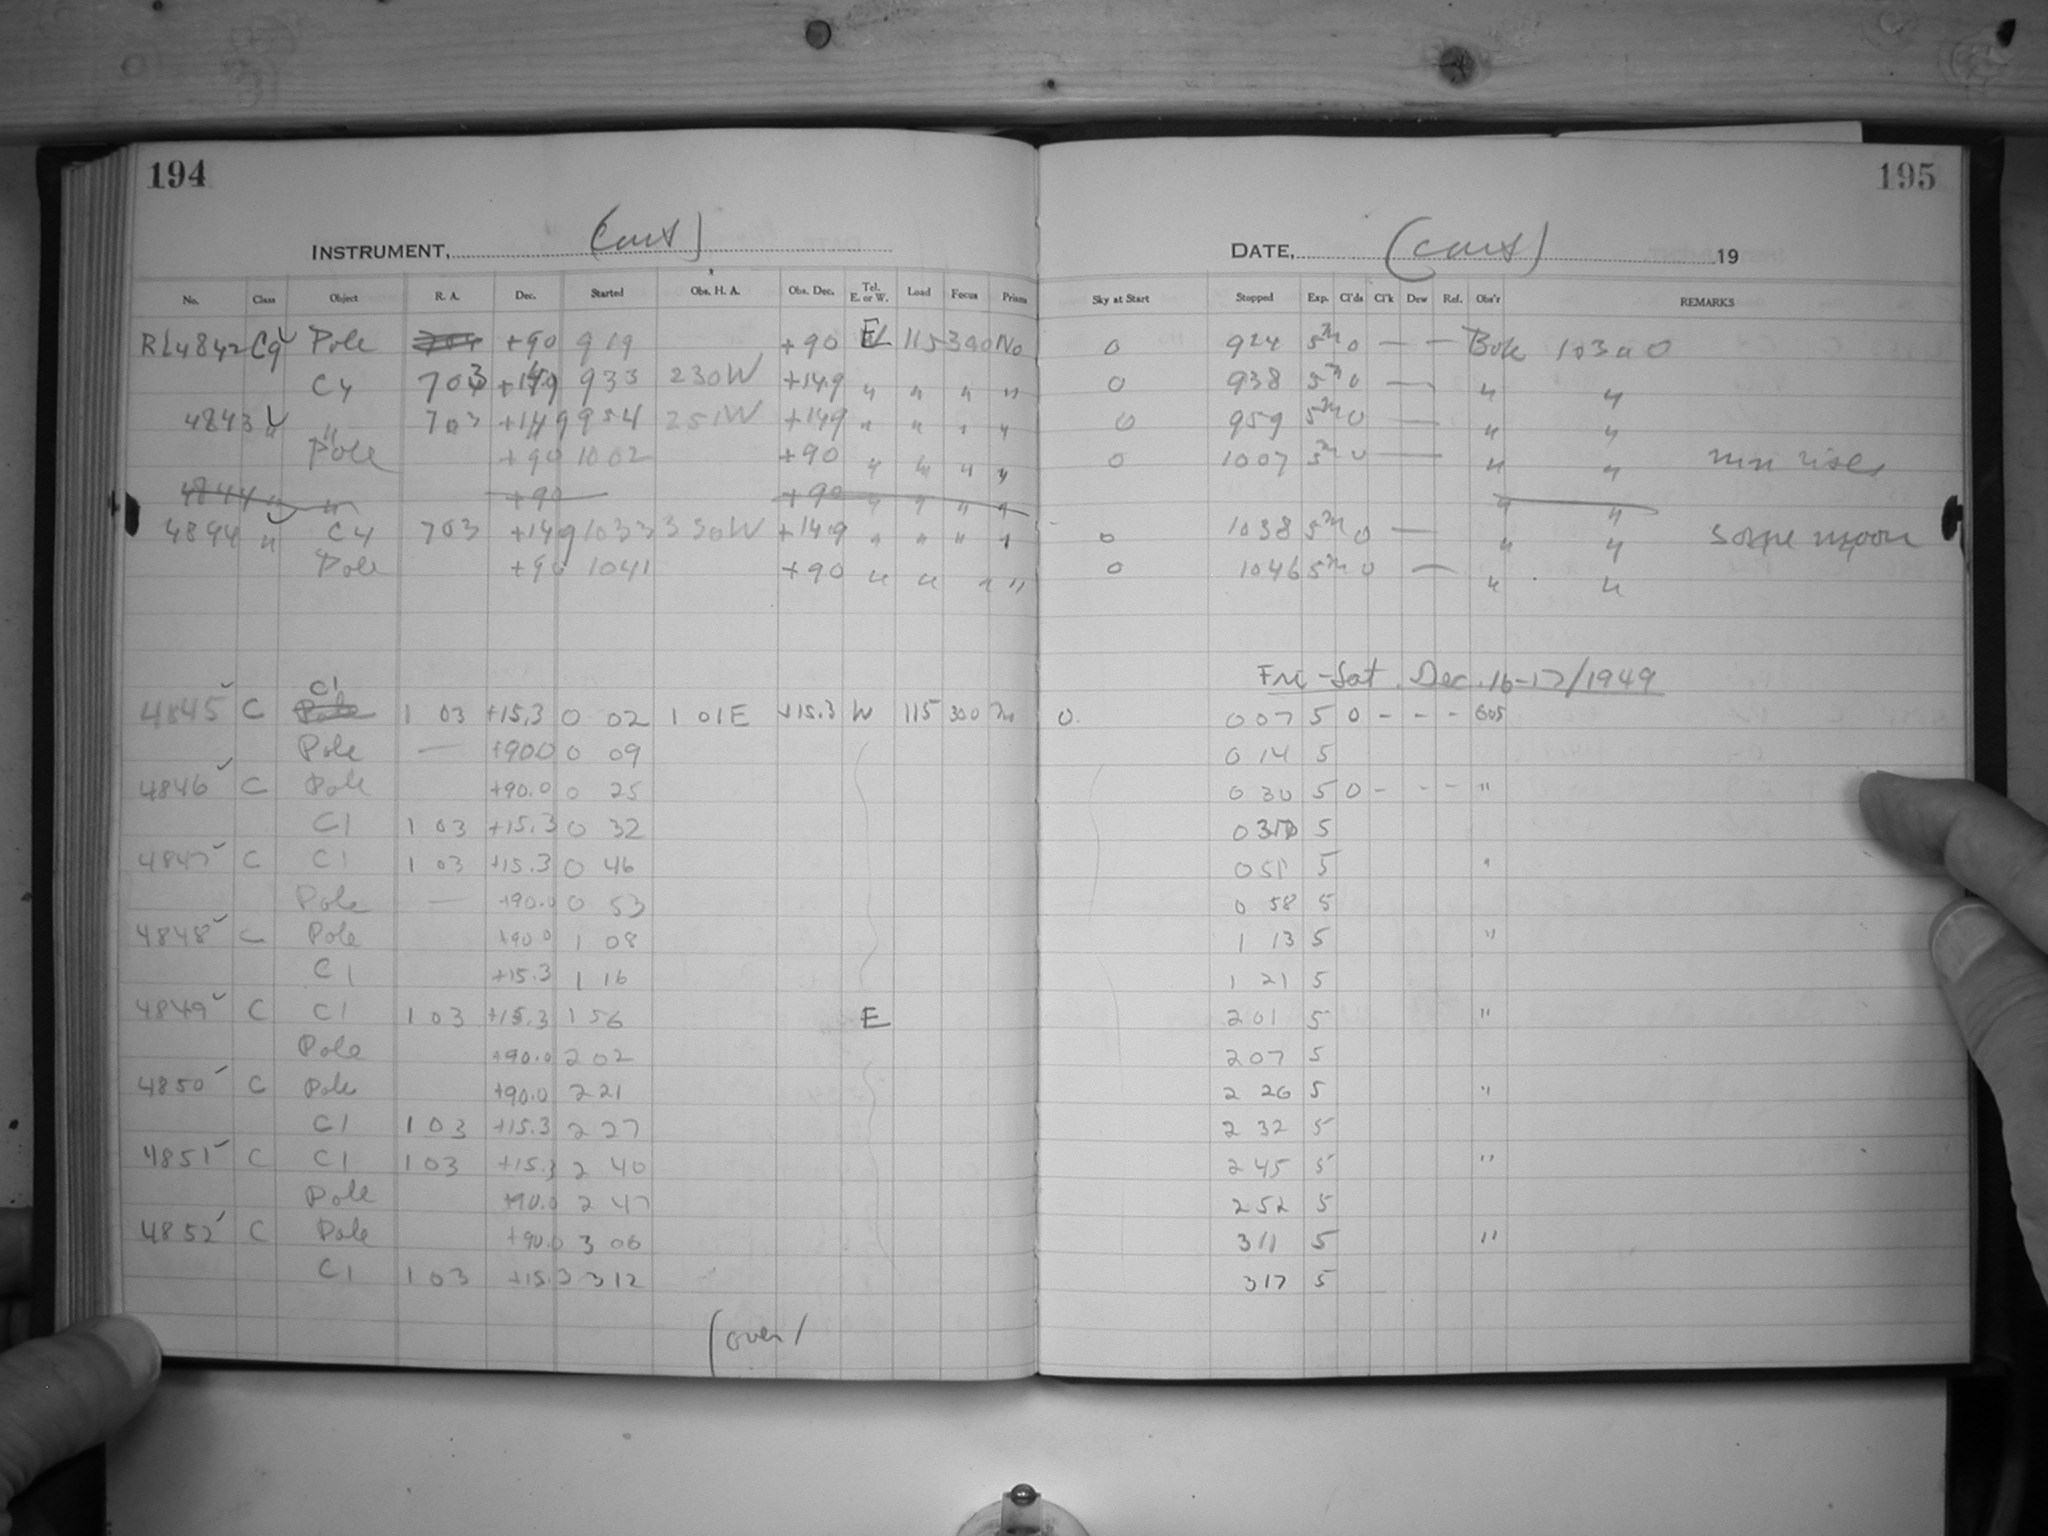 194
195
INSTRUMENT, (cont)
DATE, (cont) 19
No. Class Object R. A. Dec. Started Obs. H. A. Obs. Dec. Tel. E. or W. Load Focus Prism Sky at Start Stopped Exp. Cl'ds Cl'k Dew Ref. Obs'r REMARKS
RL4842 C Pole +90 919 +90 E 115 300 No 0 924 5m 0 — — Bok 103a0
C4 703 +14.9 933 230W +14.9 " " " " 0 938 5m 0 — " "
4843 " " 703 +14.9 954 251W +14.9 " " " " 0 959 5m 0 — " "
Pole +90 1002 +90 " " " " 0 1007 5m 0 — " " mn rises
4844 " " +90 +90 " " " " " "
4844 " C4 703 +14.9 1033 330W +14.9 " " " " 0 1038 5m 0 — " " some moon
Pole +90 1041 +90 " " " " 0 1046 5m 0 — " "
Fri-Sat. Dec. 16-17/1949
C1
4845 C Pole 1 03 +15.3 0 02 1 01E +15.3 W 115 300 0 0 07 5 0 - - -
Pole — +90.0 0 09 0 14 5
4846 C Pole +90.0 0 25 0 30 5 0 - - - "
C1 1 03 +15.3 0 32 5
4847 C C1 1 03 +15.3 0 46 0 51 5 "
Pole — +90.0 0 53 0 58 5
4848 C Pole +90.0 1 08 1 13 5 "
C1 +15.3 1 16 1 21 5
4849 C C1 1 03 +15.3 1 56 E 2 01 5 "
Pole +90.0 2 02 2 07 5
4850 C Pole +90.0 2 21 2 26 5 "
C1 1 03 +15.3 2 27 2 32 5
4851 C C1 1 03 +15.3 2 40 2 45 5 "
Pole +90.0 2 47 2 52 5
4852 C Pole +90.0 3 06 3 11 5 "
C1 1 03 +15.3 3 12 3 17 5
(over)